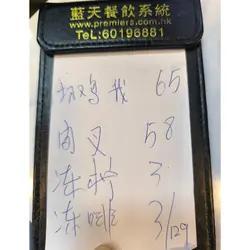 藍天餐飲系統
www.premiers.com.hk
TeL:60196881
65
肉叉 58
冻柠 3
冻啡 3/129